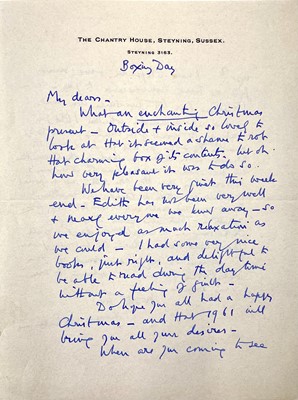 THE CHANTRY HOUSE, STEYNING, SUSSEX.
STEYNING 2153.
Boxing Day
My dears –
What an enchanting Christmas
present – Outside & inside so lovely to
look at that it seemed a shame to rob
that charming box of its contents – but oh
how very pleasant it was to do so.
We have been very quiet this week
end – Edith has not been very well
& nearly everyone we know away – so
we enjoyed as much relaxation as
we could – I had some very nice
books, just right, and delightful to
be able to read during the day time
without a feeling of guilt –
Do hope you all had a happy
Christmas – and that 1961 will
bring you all your desires –
When are you coming to see